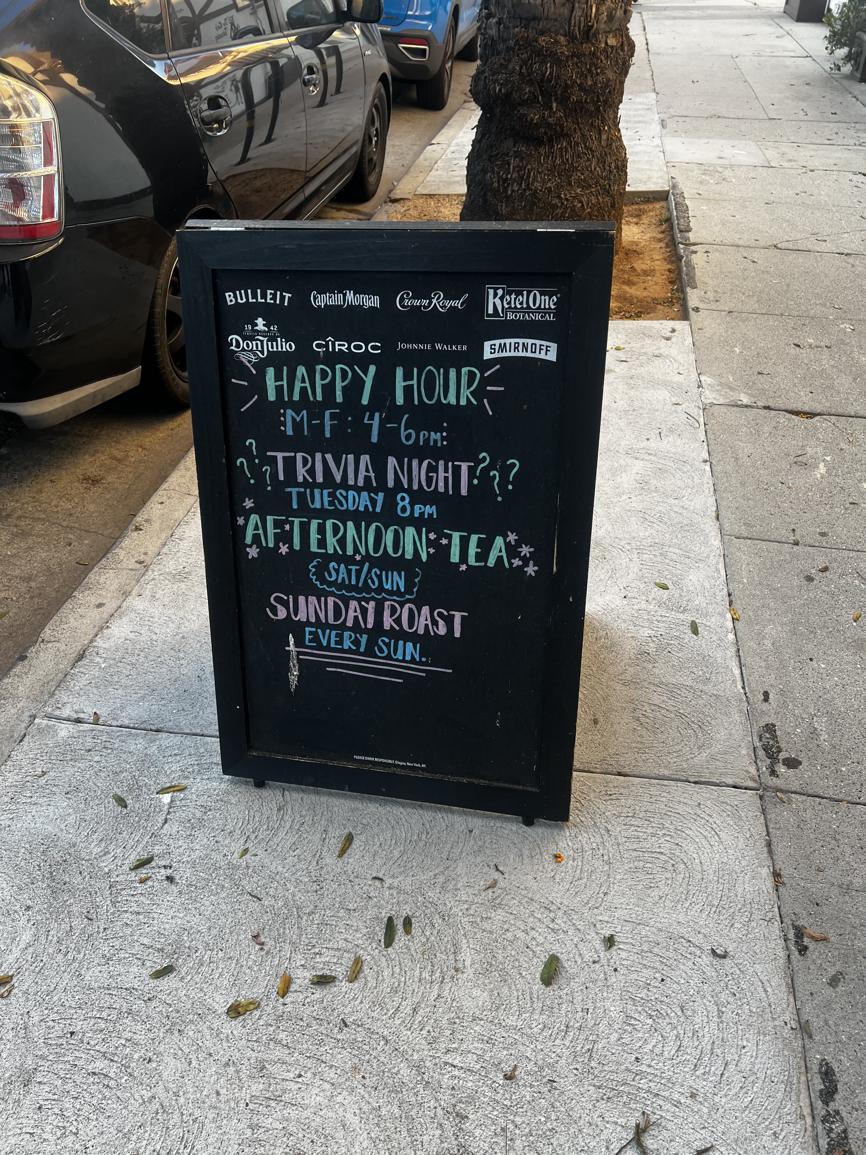 BULLEIT Captain Morgan Crown Royal Ketel One BOTANICAL
1942 Don Julio CÎROC JOHNNIE WALKER SMIRNOFF
HAPPY HOUR
M-F: 4-6PM
?? TRIVIA NIGHT ???
TUESDAY 8PM
AFTERNOON TEA
SAT/SUN
SUNDAY ROAST
EVERY SUN.
PLEASE DRINK RESPONSIBLY. Diageo, New York, NY.